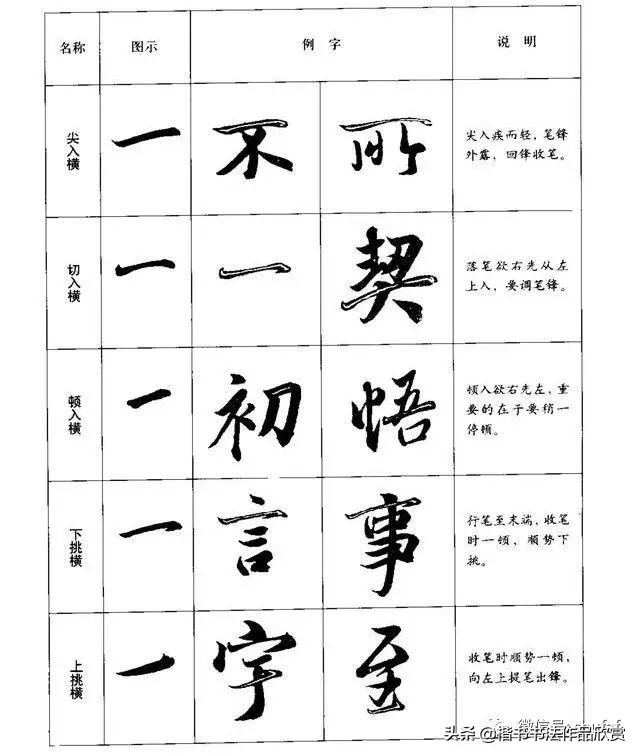 名称 图示 例字 说明
尖入横 一 不 所 尖入疾而轻，笔锋
外露，回锋收笔。
切入横 一 一 契 落笔欲右先从左
上入，要调笔锋。
顿入横 一 初 悟 顿入欲右先左，重
要的在于要稍一
停顿。
下挑横 一 言 事 行笔至末端，收笔
时一顿，顺势下
挑。
上挑横 一 字 至 收笔时顺势一顿，
向左上提笔出锋。
微信号
头条@楷书书法作品欣赏